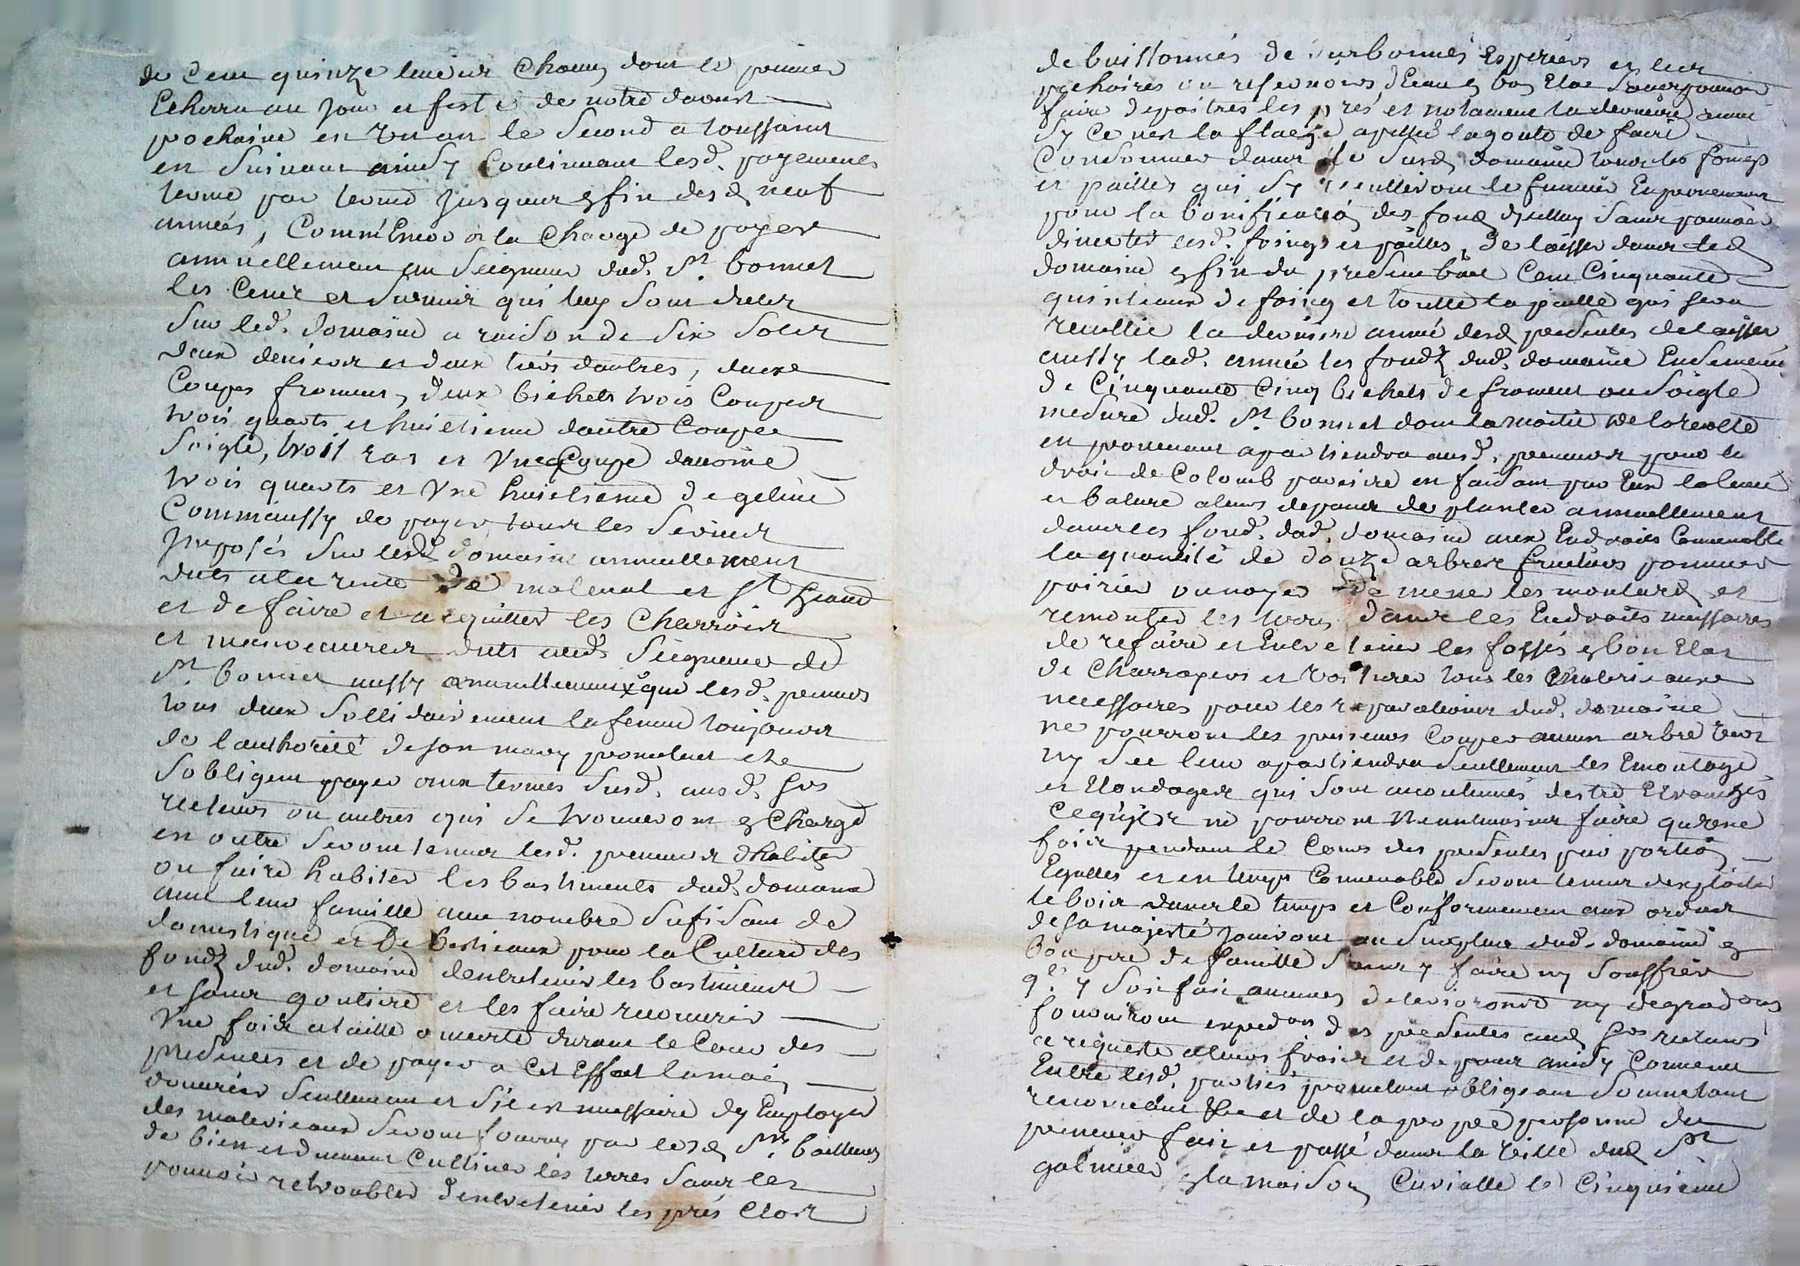 de Cent quinze livres Chacun dont le premier
Echerra au jour et feste de notre daoust
prochaine en Un an le Second a toussaint
en Suivant ainsy Continuant lesd. payements
terme par terme jusques a fin desd neuf
années, Comm'Encor a la Charge de payer
annuellement au Seigneur dud. St. bonnet
les Cens et Servis qui luy sont deubs
Sur led. domaine a raison de Six Solz
deux deniers et deux tiers dautres, deux
Coupes froment, deux bichets trois Coupes
trois quarts et huictieme dautre Coupe
Soigle, trois ras et Une Coupe davoine
trois quarts et Une huictieme de geline
Comm'aussy de payer tous les Servis
Imposés Sur led. domaine annuellement
duts a la rente de malleval et St
et de faire et acquitter les Charrois
et manoeuvres duts aud. Seigneur de
St. bonnet aussy annuellement que lesd. preneurs
tous deux Sollidairement la femme toujours
de l'authorité de son mary promettent et
S'obligent payer aux termes Susd. ausd. Srs
recteurs ou autres qui Se trouveront en Charge
en outre Seront tenus lesd. preneurs d'habiter
ou faire habiter les bastiments dud. domaine
avec leur famille avec nombre Sufisant de
domestique et de bestieaux pour la Culture des
fondz dud. domaine dentretenir les bastiments
et sans goutiere et les faire recouvrir
Une fois a taille ouverte durant le Cour des
presentes et de payer a Cet Effet la main
d'ouvriers Seullement et S'il est necessaire dy Employer
des materieaux Seront fournis par lesd Srs bailleurs
de bien et duement Cultiver les terres Sans les
pouvoir retroubler d'entretenir les prés Clos
de buissonnés de Surbonnés Esperiers et leur
pechoires ou reservoirs d'Eau en bon Etat Sans pouvoir
faire depaitres les prés et notament la derniere année
Sy Ce n'est la flaege apellé la goute de faire
Consommer dans le Susd domaine tous les foings
et pailles qui S'y receuilliront le fumier En provenant
pour la bonification des fondz d'jcelluy Sans pouvoir
divertir lesd. foings et pailles, de laisser dans led
domaine a fin du present bail Cent Cinquante
quinteaux de foing et toutte la paille qui sera
receuillie la derniere année desd presentes de laisser
aussy lad. année les fondz dud. domaine Ensemencé
de Cinquante Cinq bichets de froment ou Soigle
mesure dud. St. bonnet dont la moitié de la recolte
en provenant apartiendra ausd. preneurs pour le
droit de Colomb pariaire en faisant par Eux la levée
et bature a leurs depans de planter annuellement
dans les fond. dud. domaine aux Endroits Convenable
la quantité de douze arbres fruitiers pommier
poirier ou noyer de mener les moulards et
remonter les terres dans les Endroits necessaires
de refaire et Entretenir les fossés en bon Etat
de Charroyers et Voiturer tous les Materieaux
necessaires pour les reparations dud. domaine
ne pourront les preneurs Couper aucun arbre Vert
ny Sec leur apartiendra Seullement les Emontage
et Elondages qui Sont acoutumés destre Etranchés
Ce qu'ils ne pourront Neanmoins faire qu'une
fois pendant le Cours des presentes par portion
Egalles et en temps Convenable Seront tenus dexploiter
le bois dans le temps et Conformement aux ordres
de Sa majesté Jouiront au Surplus dud. domaine en
bon pere de famille Sans y faire ny Souffrir
ql. y Soit fait aucunes deteriorons ny degradons
fourniront expedon des presentes ausd Srs recteurs
a requeste a leurs frais et de pour ainsy Convenu
Entre lesd. parties promettant obligeant Soumettant
renonceant Etc et de la propre personne du
preneur fait et passé dans la Ville dud St
galmier en la maison Curialle le Cinquieme